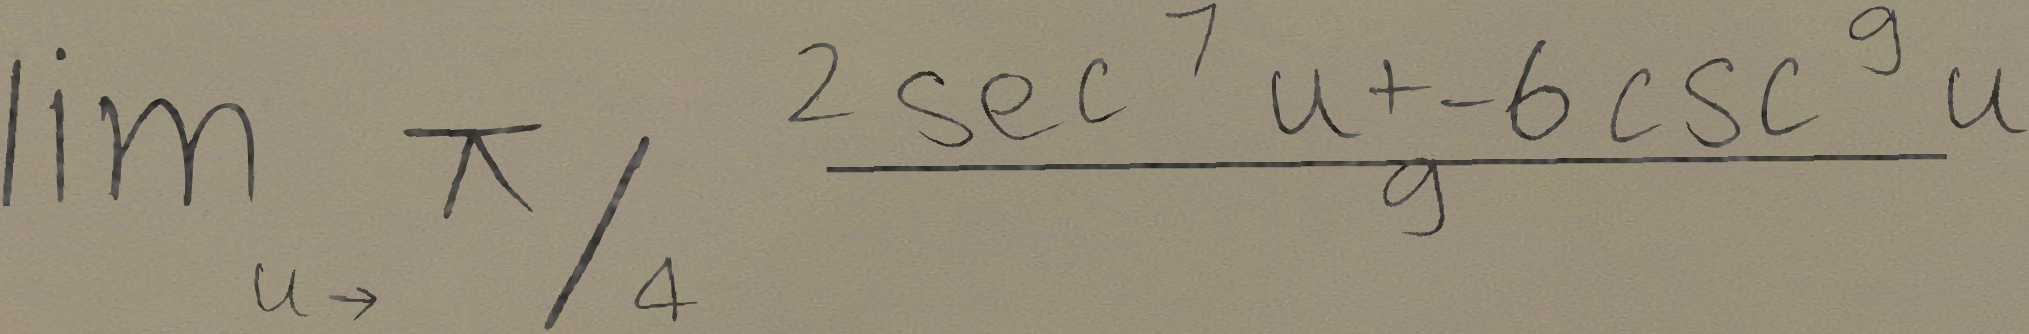 \lim_{u \to \pi/4} \frac{2 \sec^7 u + -6 \csc^9 u}{9}